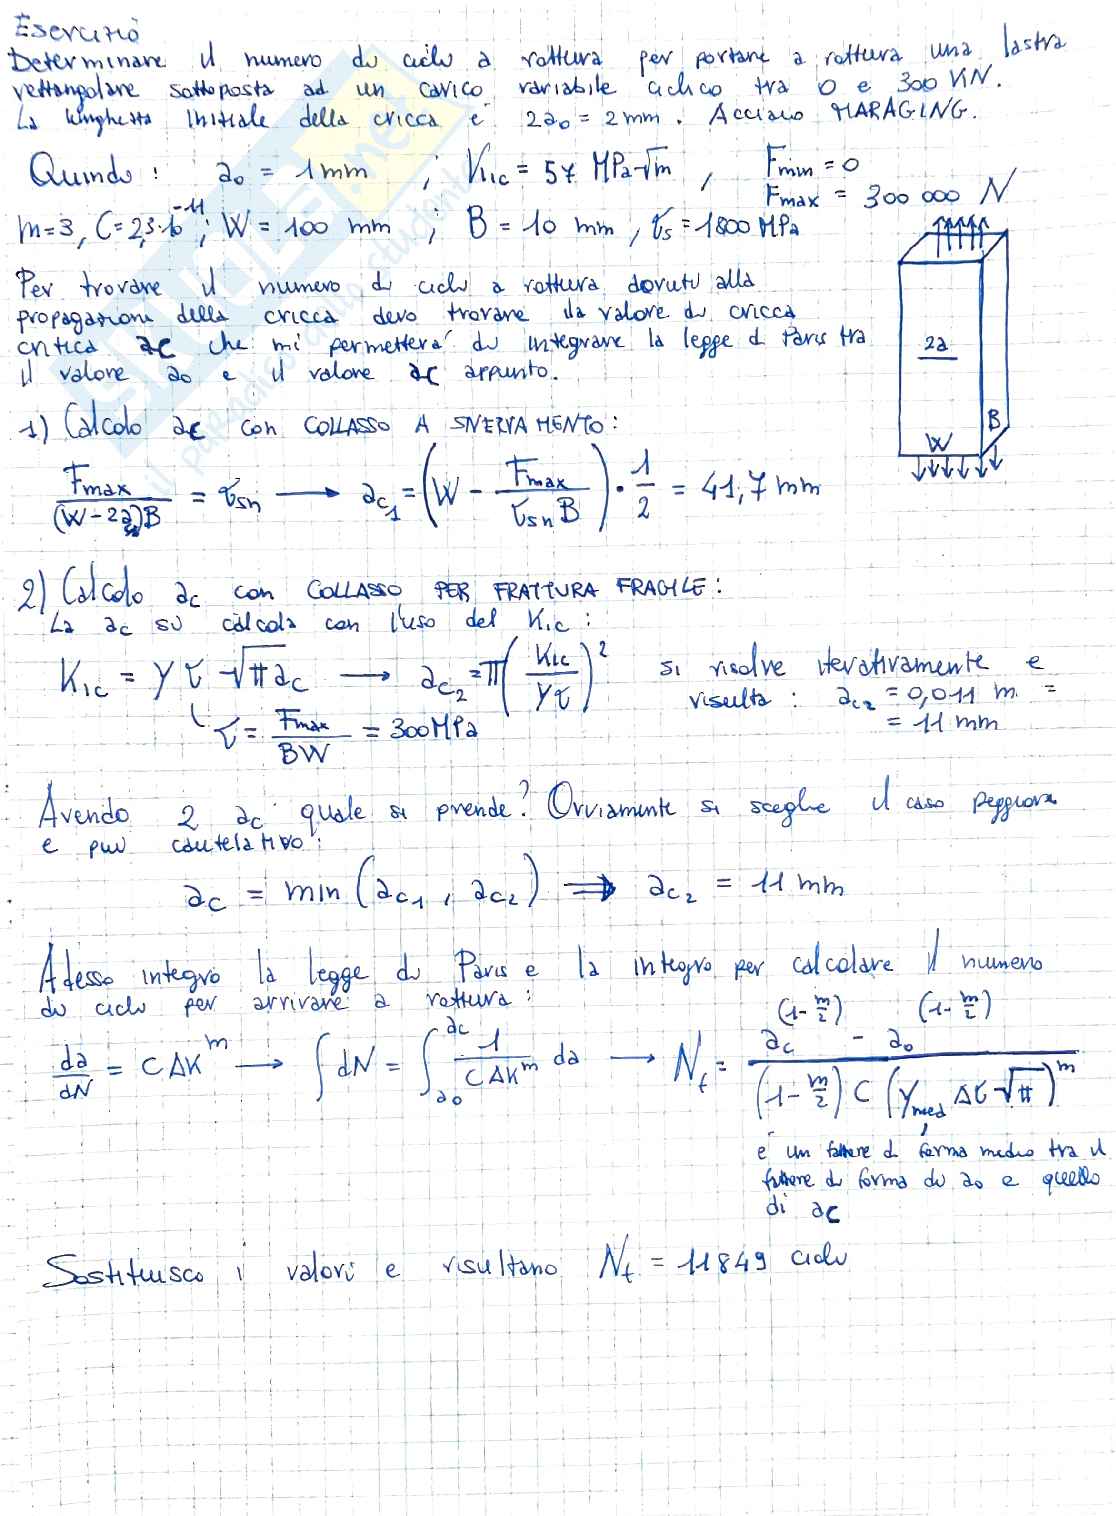 Esercizio
Determinare il numero di cicli a rottura per portare a rottura una lastra
rettangolare sottoposta ad un carico variabile ciclico tra 0 e 300 KN.
La lunghezza iniziale della cricca è 2a₀ = 2mm. Acciaio MARAGING.
Quindi: a₀ = 1mm ; K₁c = 57 MPa√m , Fmin = 0
Fmax = 300 000 N
m=3, C=2,3·10⁻¹¹; W = 100 mm ; B = 10 mm, σs = 1800 MPa
Per trovare il numero di cicli a rottura dovuti alla
propagazione della cricca devo trovare il valore di cricca
critica ac che mi permetterà di integrare la legge di Paris tra
il valore a₀ e il valore ac appunto.
2a
B
W
1) Calcolo ac con COLLASSO A SNERVAMENTO:
Fmax / (W-2a)B = σsn → ac₁ = (W - Fmax / σsn B) · 1/2 = 41,7 mm
2) Calcolo ac con COLLASSO PER FRATTURA FRAGILE:
La ac si calcola con l'uso del K₁c:
K₁c = Yσ√πac → ac₂ = π(K₁c / Yσ)² si risolve iterativamente e
risulta: ac₂ = 0,011 m. =
= 11 mm
σ = Fmax / BW = 300 MPa
Avendo 2 ac quale si prende? Ovviamente si sceglie il caso peggiore
e più cautelativo:
ac = min (ac₁, ac₂) ⇒ ac₂ = 11 mm
Adesso integro la legge di Paris e la integro per calcolare il numero
di cicli per arrivare a rottura:
da/dN = CΔKᵐ → ∫dN = ∫a₀^ac 1/(CΔKᵐ) da → Nt = (ac^(1-m/2) - a₀^(1-m/2)) / ((1-m/2) C (Ymed Δσ√π)ᵐ)
è un fattore di forma medio tra il
fattore di forma di a₀ e quello
di ac
Sostituisco i valori e risultano Nt = 11849 cicli